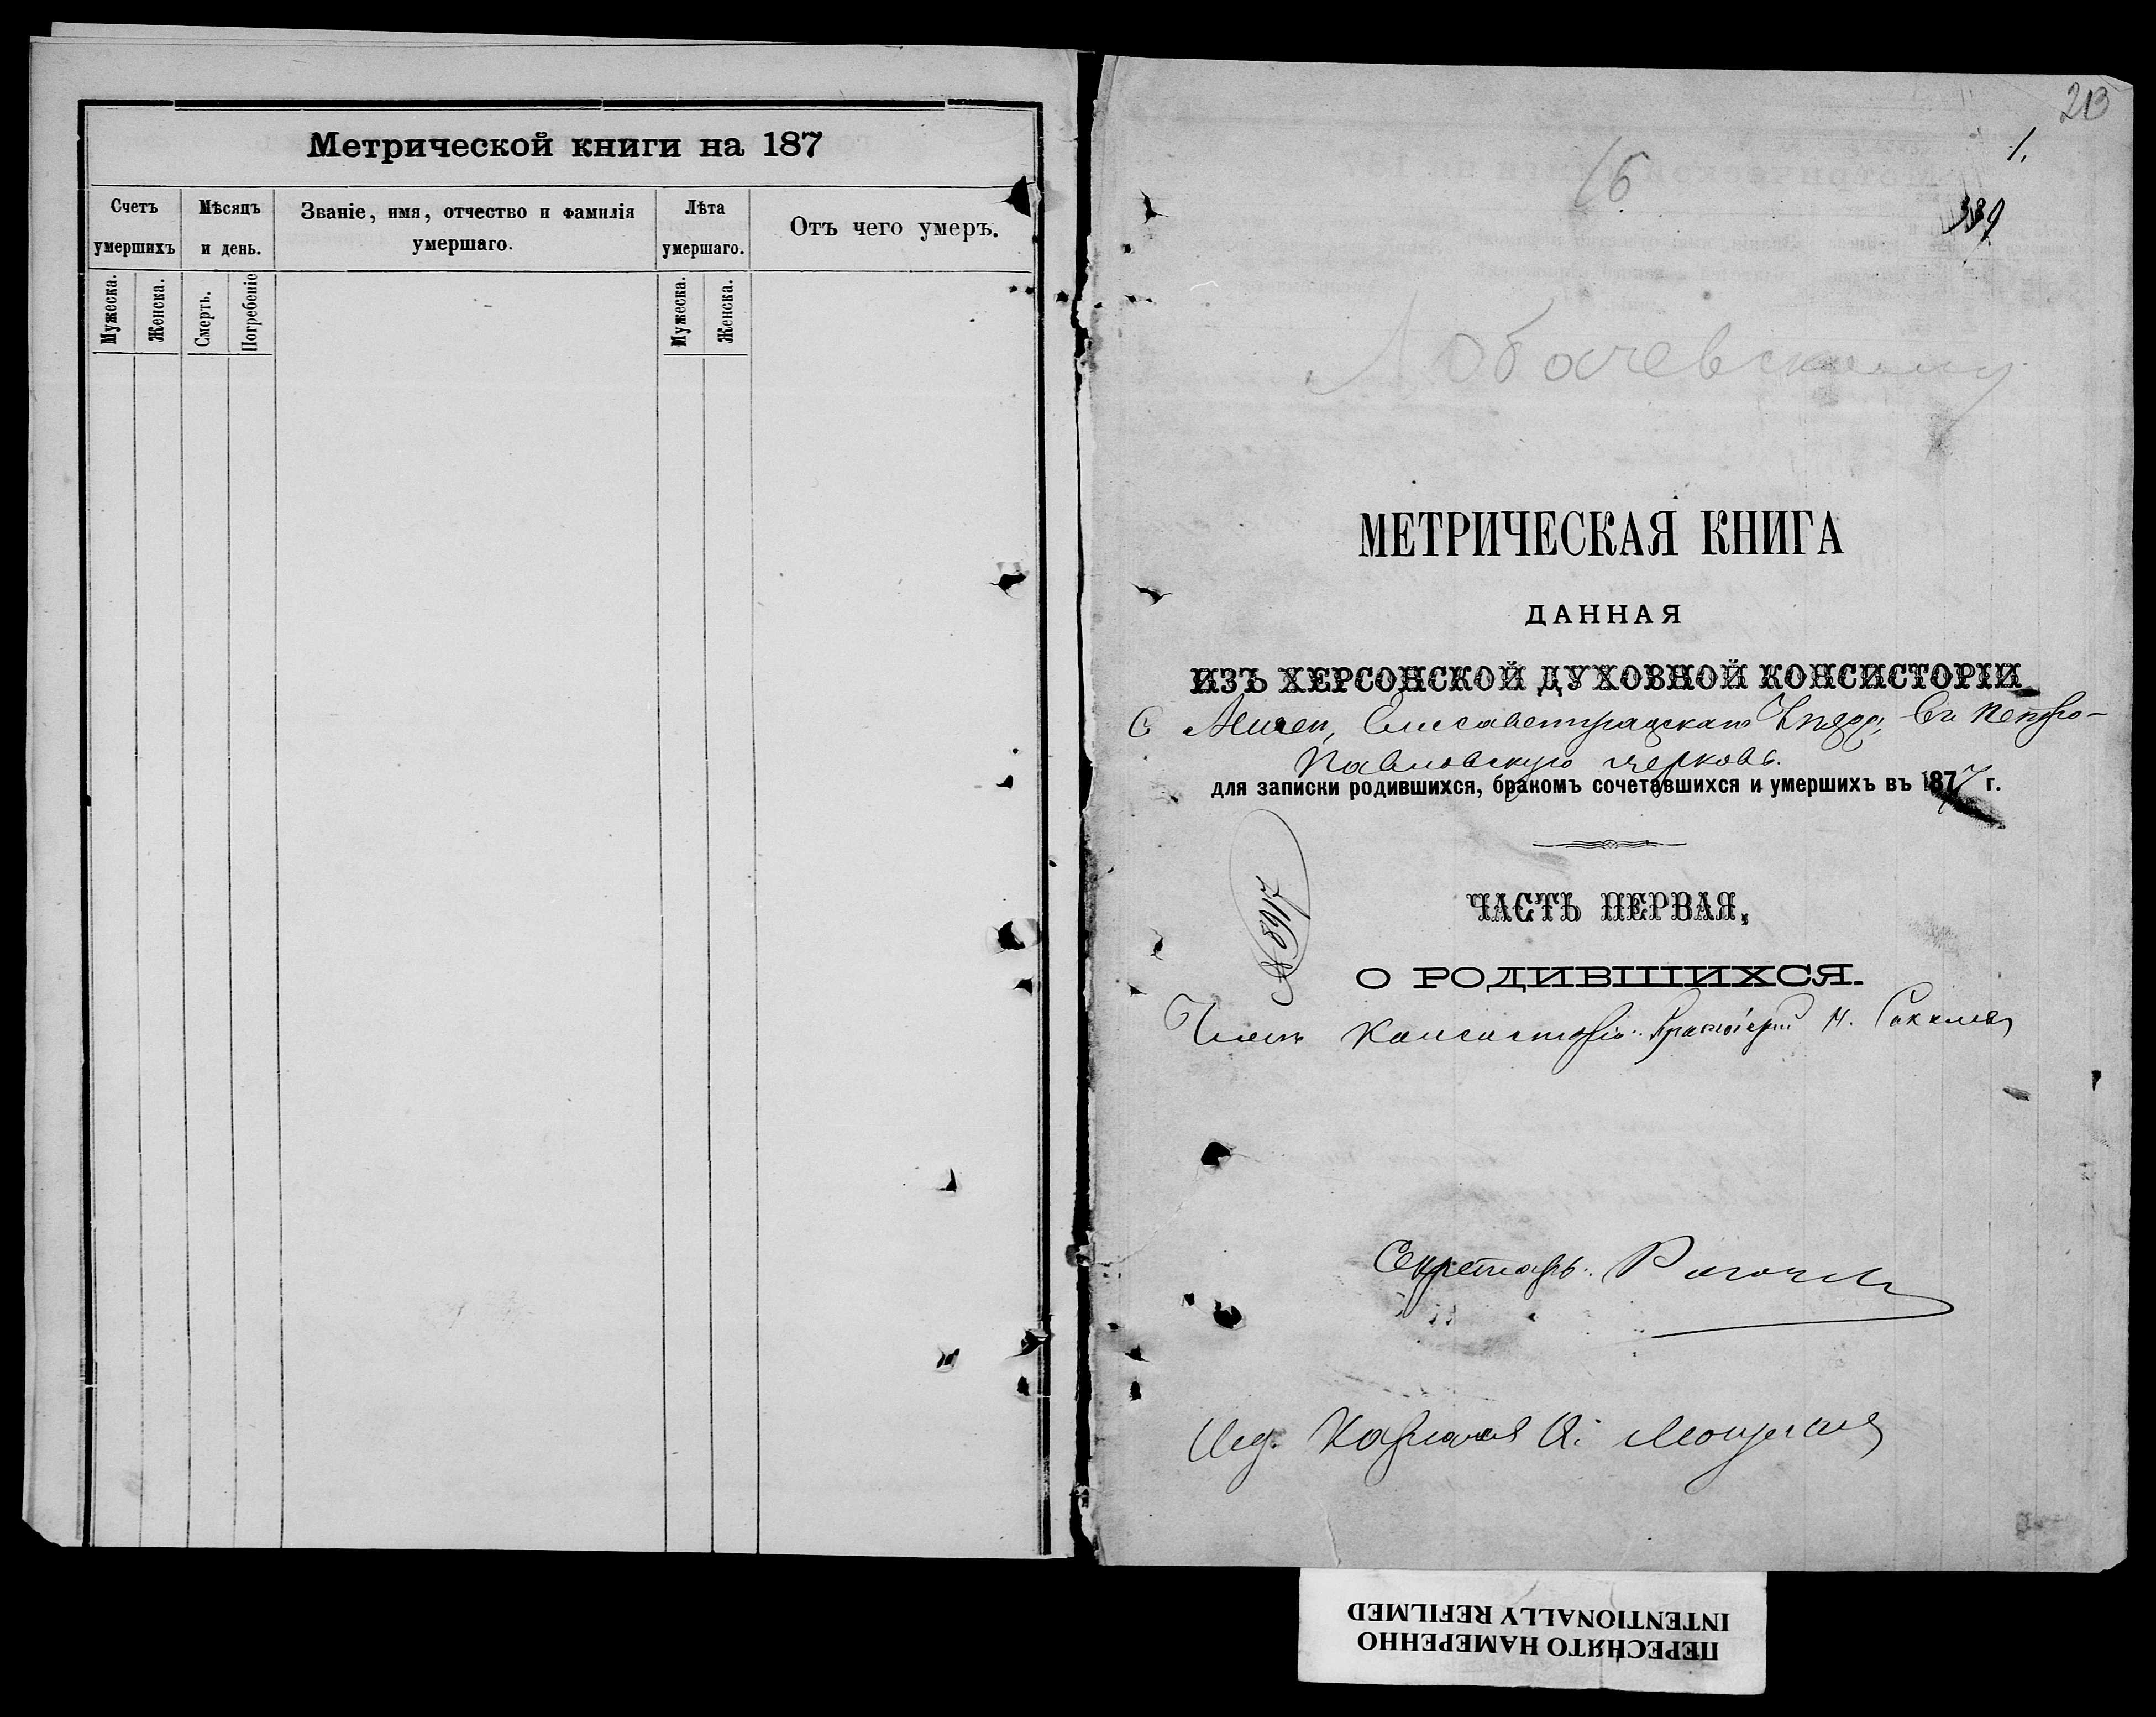 Метрической книги на 187
Счетъ умершихъ
Мѣсяцъ и день.
Званіе, имя, отчество и фамилія умершаго.
Лѣта умершаго.
Отъ чего умеръ.
Мужеска.
Женска.
Смерть.
Погребеніе
Мужеска.
Женска.
213
1.
16
339
Лобачевскому
МЕТРИЧЕСКАЯ КНИГА
ДАННАЯ
ИЗЪ ХЕРСОНСКОЙ ДУХОВНОЙ КОНСИСТОРІИ
Елисаветградскаго Въ Петро-
Павловскую церковь.
для записки родившихся, бракомъ сочетавшихся и умершихъ въ 1877 г.
№ 8917
ЧАСТЬ ПЕРВАЯ,
О РОДИВШИХСЯ.
Членъ Консисторіи: Протоіерей
Секретарь:
ПЕРЕСНЯТО НАМЕРЕННО
INTENTIONALLY REFILMED